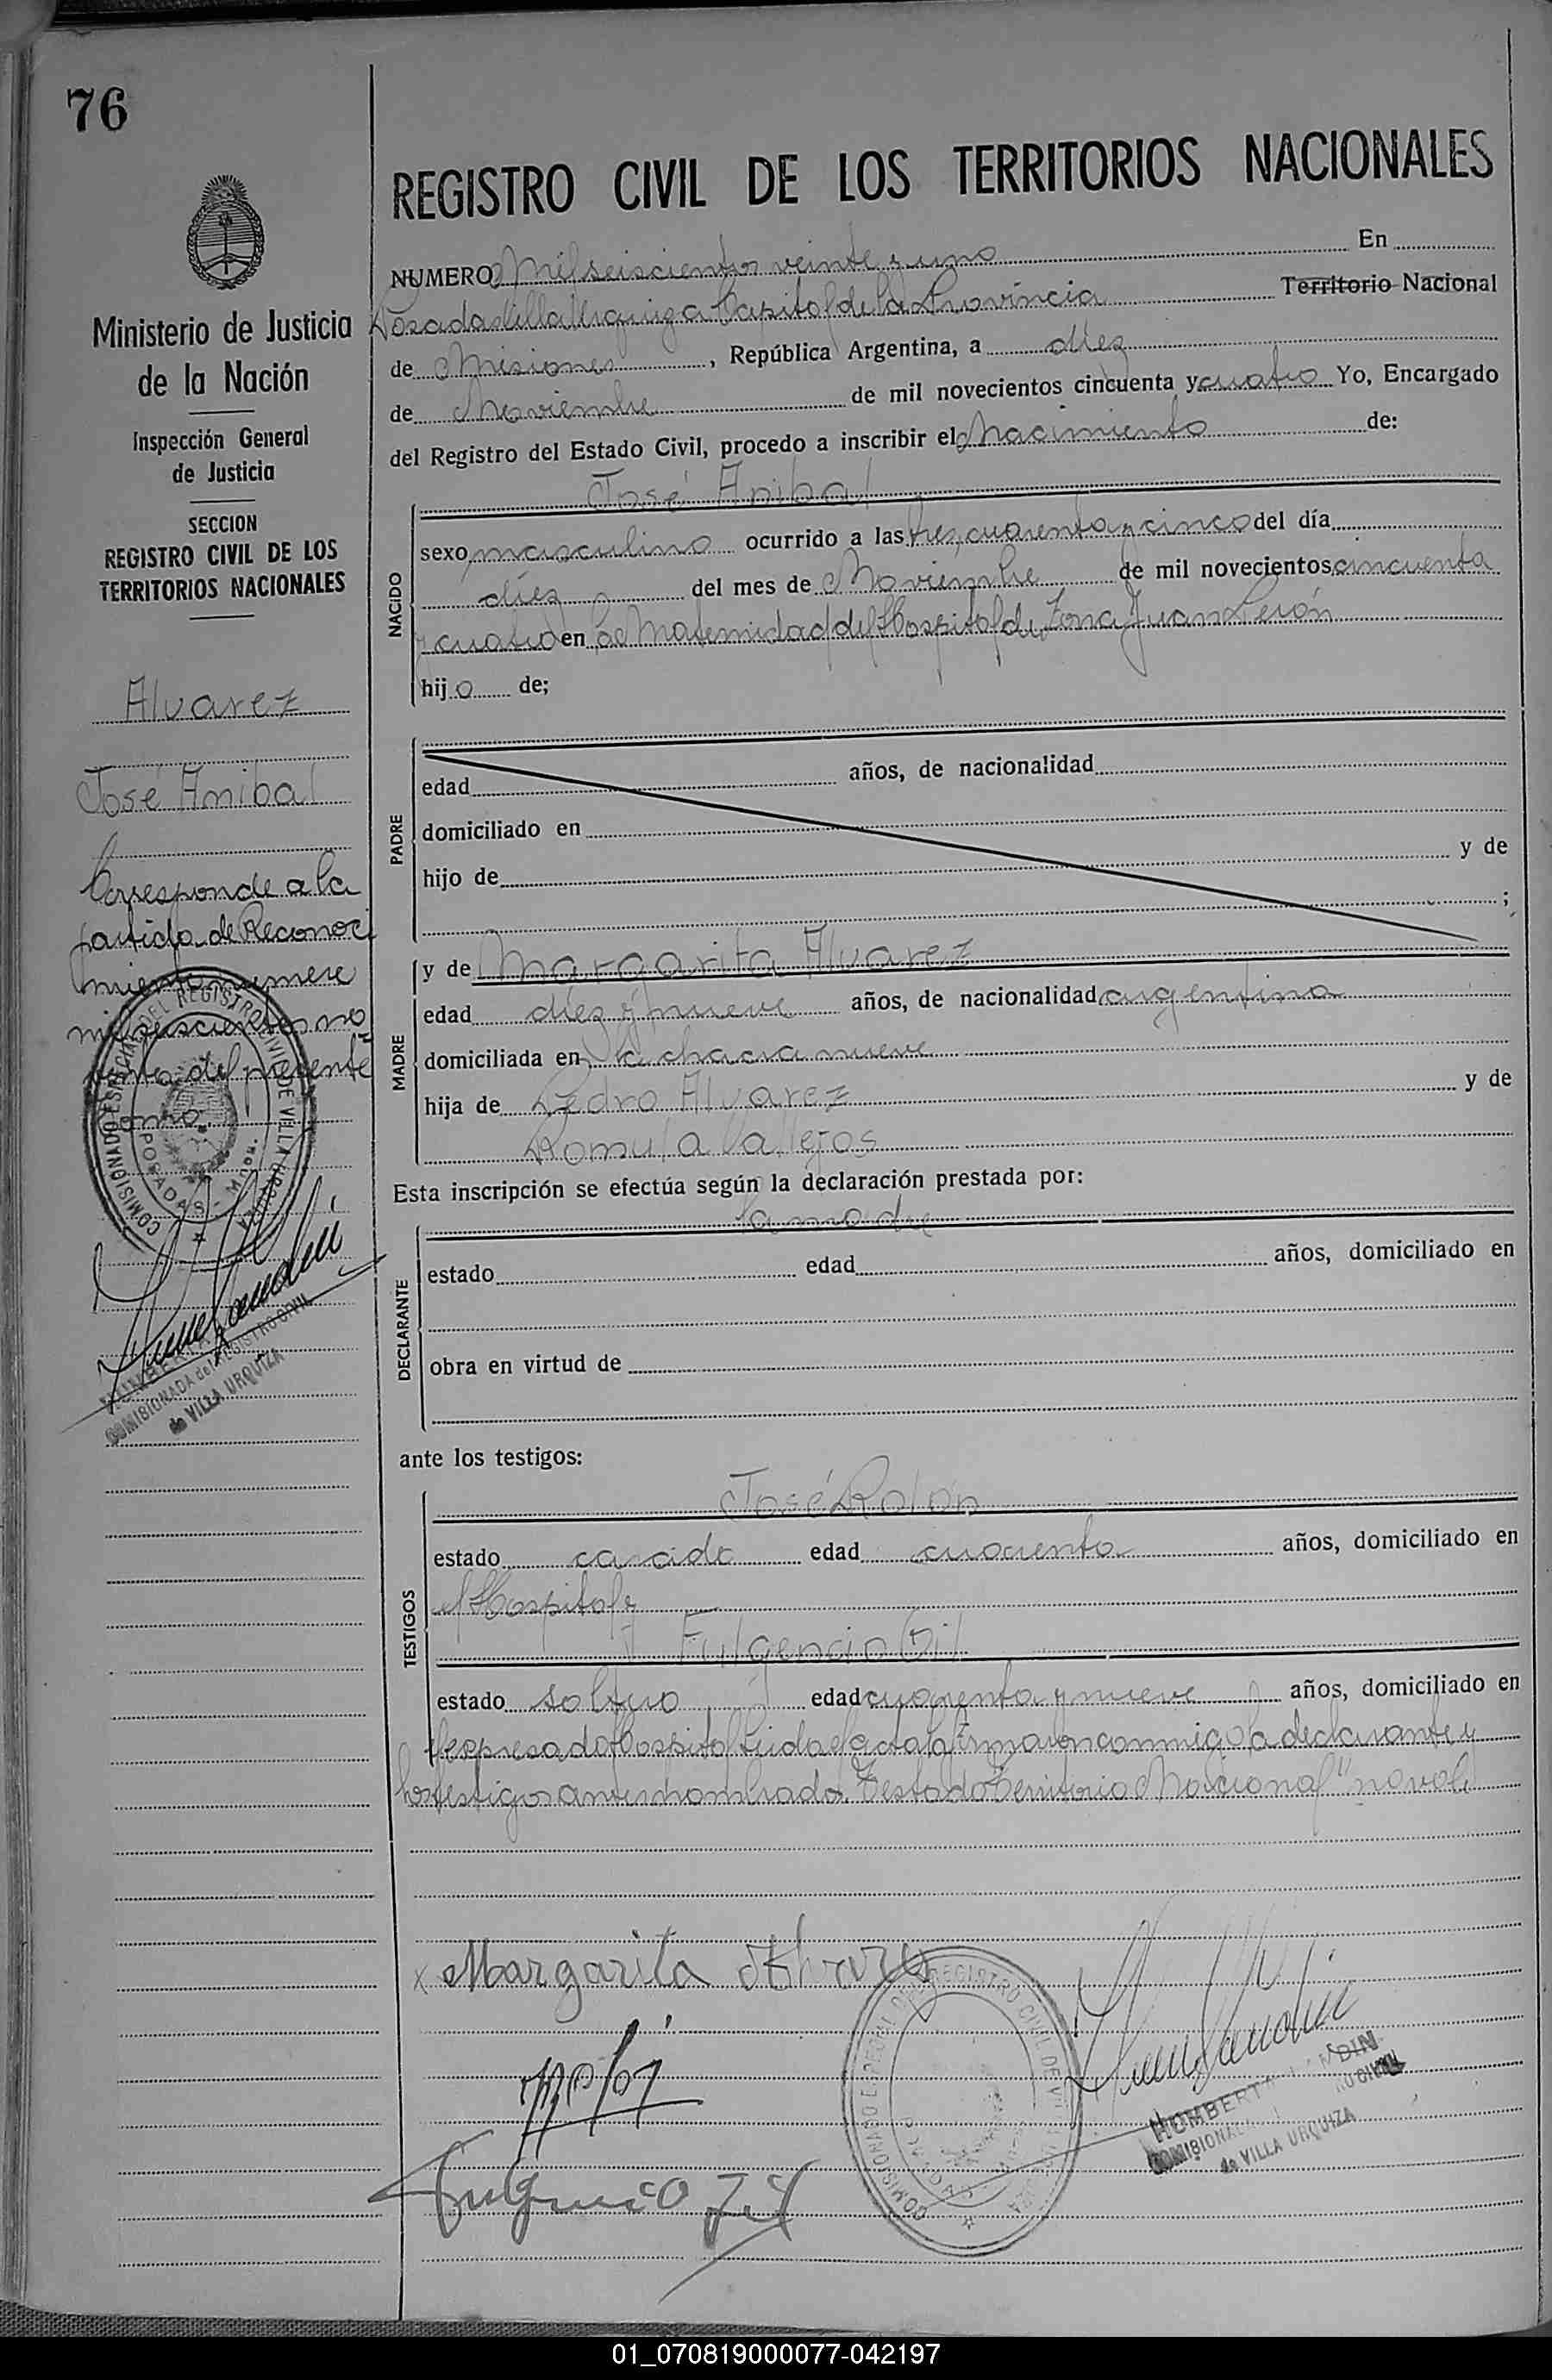 76
Ministerio de Justicia
de la Nación
Inspección General
de Justicia
SECCION
REGISTRO CIVIL DE LOS
TERRITORIOS NACIONALES
Alvarez
José Anibal
Corresponde a la
partida de Reconoci
miento numero
mil seiscientos no
venta del presente
año.
COMISIONADO ESPECIAL DEL REGISTRO CIVIL DE VILLA URQUIZA
POSADAS - Mnes.
COMISIONADA del REGISTRO CIVIL
de VILLA URQUIZA
REGISTRO CIVIL DE LOS TERRITORIOS NACIONALES
NUMERO Mil seiscientos veinte y uno En
Posadas Villa Urquiza Capital de la Provincia Territorio Nacional
de Misiones, República Argentina, a diez
de Noviembre de mil novecientos cincuenta y cuatro Yo, Encargado
del Registro del Estado Civil, procedo a inscribir el Nacimiento de:
NACIDO
José Anibal
sexo masculino ocurrido a las tres, cuarenta y cinco del día
diez del mes de Noviembre de mil novecientos cincuenta
y cuatro en la Maternidad del Hospital de Zona Juan Perón
hijo de;
PADRE
edad años, de nacionalidad
domiciliado en
hijo de y de
;
MADRE
y de Margarita Alvarez
edad diez y nueve años, de nacionalidad argentina
domiciliada en la chacra nueve
hija de Pedro Alvarez y de
Romula Vallejos
Esta inscripción se efectúa según la declaración prestada por:
DECLARANTE
la madre
estado edad años, domiciliado en
obra en virtud de
ante los testigos:
TESTIGOS
José Rolón
estado casado edad cuarenta años, domiciliado en
el Hospital y
Fulgencio Gil
estado soltero edad cuarenta y nueve años, domiciliado en
el expresado Hospital Leida el acta la firmaron conmigo la declarante y
los testigos antes nombrados. Testado "Territorio Nacional" no vale
x Margarita Alvarez
Fulgencio Gil
COMISIONADO ESPECIAL DEL REGISTRO CIVIL DE VILLA URQUIZA
de VILLA URQUIZA
01_070819000077-042197